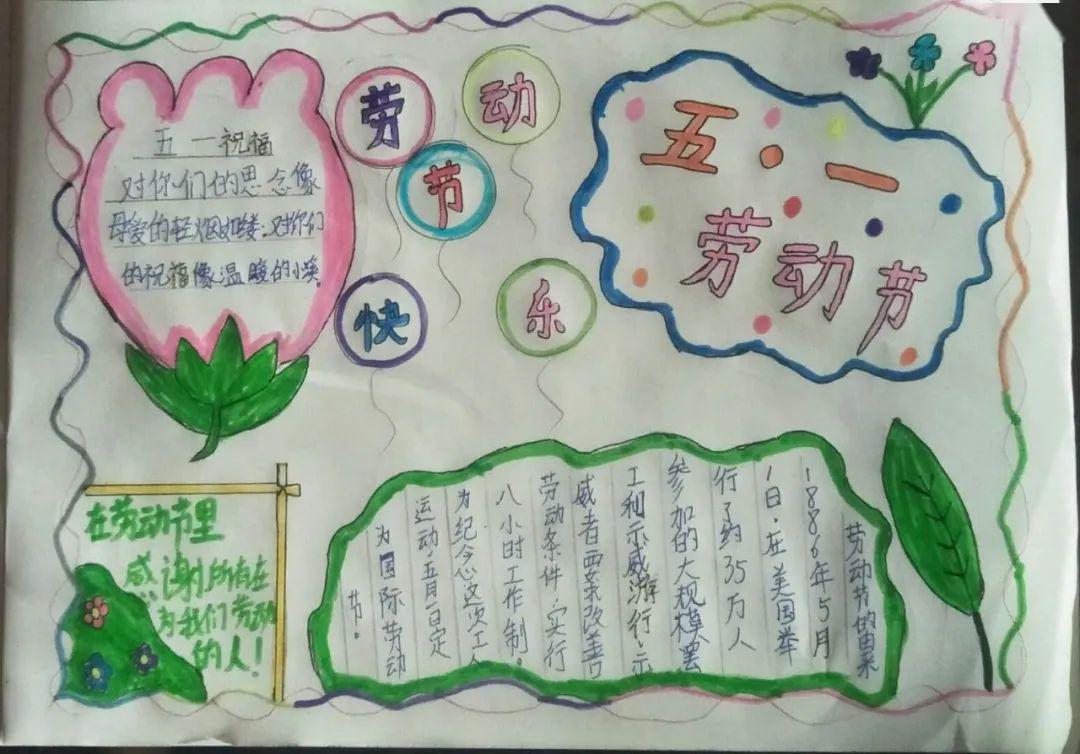 五一祝福
对你们的思念像
母爱的轻烟如缕、对你们
的祝福像温暖的小溪。
劳动
节
快乐
五·一
劳动节
在劳动节里
感谢所有在
为我们劳动
的人!
劳动节的由来
1886年5月
1日,在美国举
行了约35万人
参加的大规模罢
工和示威游行,示
威者要求改善
劳动条件,实行
八小时工作制。
为纪念这次工人
运动,五月一日定
为国际劳动
节。